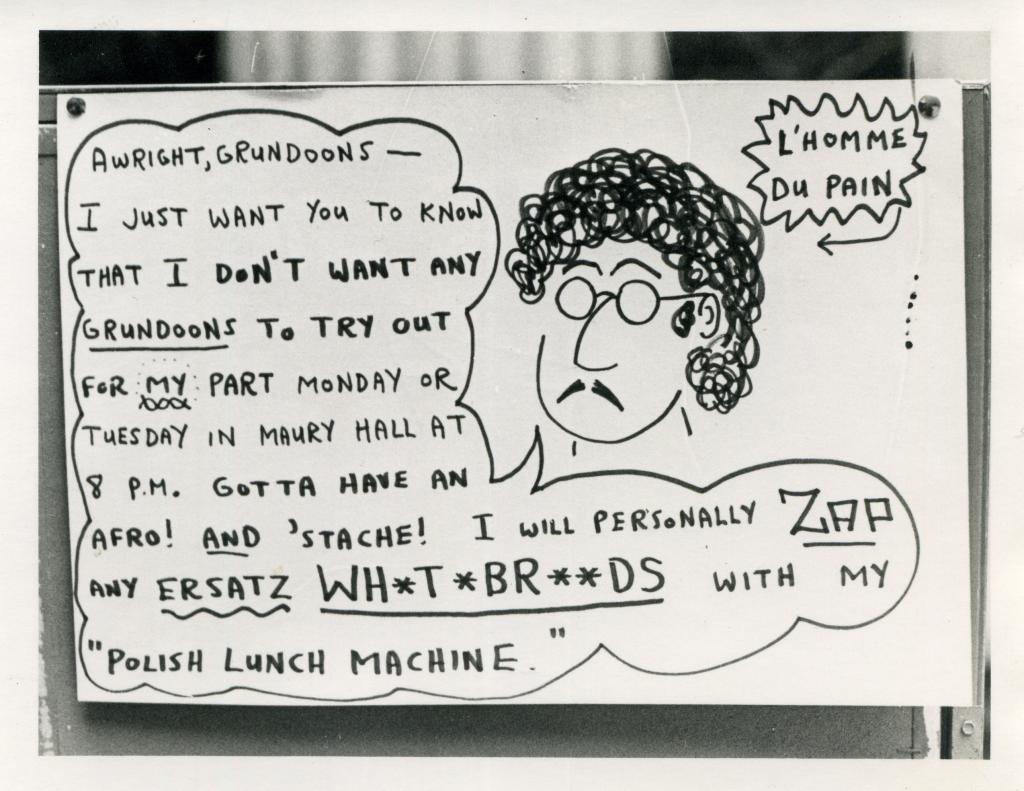 AWRIGHT, GRUNDOONS —
I JUST WANT YOU TO KNOW
THAT I DON'T WANT ANY
GRUNDOONS TO TRY OUT
FOR MY PART MONDAY OR
TUESDAY IN MAURY HALL AT
8 P.M. GOTTA HAVE AN
AFRO! AND 'STACHE! I WILL PERSONALLY ZAP
ANY ERSATZ WH*T*BR**DS WITH MY
"POLISH LUNCH MACHINE."
L'HOMME
DU PAIN